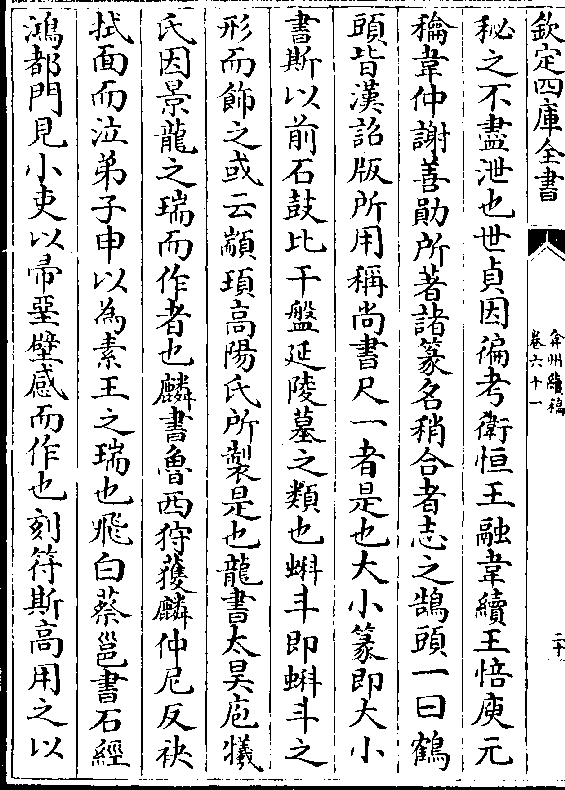 欽定四庫全書
弇州續稿
卷六十一
二十
秘之不盡泄也世貞因徧考衛恒王融韋續王愔庾元
稐韋仲謝善勛所著諸篆名稍合者志之鵠頭一曰鶴
頭皆漢詔版所用稱尚書尺一者是也大小篆即大小
書斯以前石鼓比干盤延陵墓之類也蝌斗即蝌斗之
形而飾之或云顓頊高陽氏所製是也龍書太昊庖犧
氏因景龍之瑞而作者也麟書魯西狩獲麟仲尼反袂
拭面而泣弟子申以為素王之瑞也飛白蔡邕書石經
鴻都門見小吏以帚堊壁感而作也刻符斯高用之以